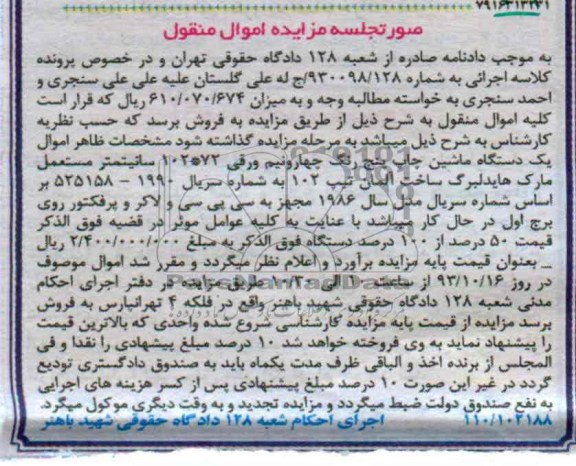 ۷۹۱۶۳۱۳۲۳۱
صورتجلسه مزایده اموال منقول
به موجب دادنامه صادره از شعبه ۱۲۸ دادگاه حقوقی تهران و در خصوص پرونده
کلاسه اجرائی به شماره ۹۳۰۰۹۸/۱۲۸/ج له علی گلستان علیه علی علی سنجری و
احمد سنجری به خواسته مطالبه وجه و به میزان ۶۱۰/۰۷۰/۶۷۴ ریال که قرار است
کلیه اموال منقول به شرح ذیل از طریق مزایده به فروش برسد که حسب نظریه
کارشناس به شرح ذیل میباشد به مرحله مزایده گذاشته شود مشخصات ظاهر اموال
یک دستگاه ماشین چاپ پنج رنگ چهارونیم ورقی ۷۲*۱۰۲ سانیتمتر مستعمل
مارک هایدلبرگ ساخت آلمان تیپ ۱۰۲ به شماره سریال ۱۹۹ - ۵۲۵۱۵۸ بر
اساس شماره سریال مدل سال ۱۹۸۶ مجهز به سی پی سی و لاکر و پرفکتور روی
برج اول در حال کار میباشد با عنایت به کلیه عوامل موثر در قضیه فوق الذکر
قیمت ۵۰ درصد از ۱۰۰ درصد دستگاه فوق الذکر به مبلغ ۲/۴۰۰/۰۰۰/۰۰۰ ریال
_ بعنوان قیمت پایه مزایده برآورد و اعلام نظر میگردد و مقرر شد اموال موصوف
در روز ۹۳/۱۰/۱۶ از ساعت الی ۱۲ از طریق مزایده در دفتر اجرای احکام
مدنی شعبه ۱۲۸ دادگاه حقوقی شهید باهنر واقع در فلکه ۴ تهرانپارس به فروش
برسد مزایده از قیمت پایه مزایده کارشناسی شروع شده واحدی که بالاترین قیمت
را پیشنهاد نماید به وی فروخته خواهد شد ۱۰ درصد مبلغ پیشهادی را نقدا و فی
المجلس از برنده اخذ و الباقی ظرف مدت یکماه باید به صندوق دادگستری تودیع
گردد در غیر این صورت ۱۰ درصد مبلغ پیشنهادی پس از کسر هزینه های اجرایی
به نفع صندوق دولت ضبط میگردد و مزایده تجدید و به وقت دیگری موکول میگرد.
۱۱۰/۱۰۲۱۸۸ اجرای احکام شعبه ۱۲۸ دادگاه حقوقی شهید باهنر